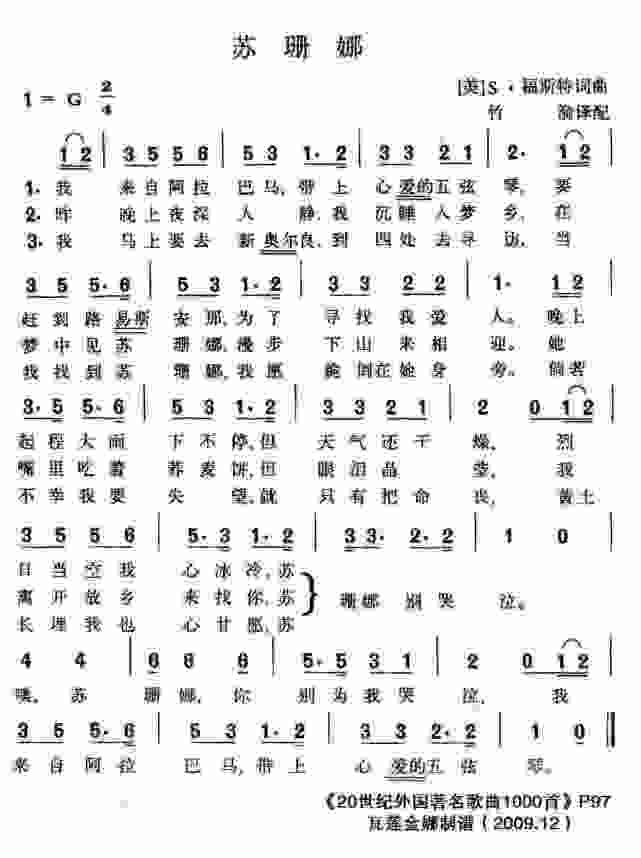 苏珊娜
1 = G 2/4
[美]S·福斯特词曲
竹 译配
1 2 | 3 5 5 6 | 5 3 1· 2 | 3 3 2 1 | 2· 1 2 |
1. 我 来自阿拉 巴马,带上 心爱的五弦 琴,要
2. 昨 晚上夜深 人 静,我 沉睡入梦乡,在
3. 我 马上要去 新奥尔良,到 四处去寻访,当
3 5 5· 6 | 5 3 1· 2 | 3 3 2 2 | 1· 1 2 |
赶到路易斯 安那,为了 寻找我爱 人。晚上
梦中见苏 珊娜,漫步 下山来相 迎。她
我找到苏 珊娜,我愿 跪倒在她身 旁。倘若
3· 5 5· 6 | 5 3 1· 2 | 3 3 2 1 | 2 0 1 2 |
起程大雨 下不停,但 天气还干 燥, 烈
嘴里吃着 荞麦饼,但 眼泪晶 莹, 我
不幸我要 失 望,就 只有把命 丧, 黄土
3 5 5 6 | 5· 3 1· 2 | 3· 3 2· 2 | 1 0 |
日当空我 心冰冷,苏
离开故乡 来找你,苏 珊娜别哭 泣。
长埋我也 心甘愿,苏
4 4 | 6 6 6 | 5· 5 3 1 | 2 0 1 2 |
噢, 苏 珊娜,你 别为我哭 泣, 我
3 5 5· 6 | 5 3 1· 2 | 3 3 2· 2 | 1 0
来自阿拉 巴马,带上 心爱的五弦 琴。
《20世纪外国著名歌曲1000首》P97
瓦莲金娜制谱(2009.12)